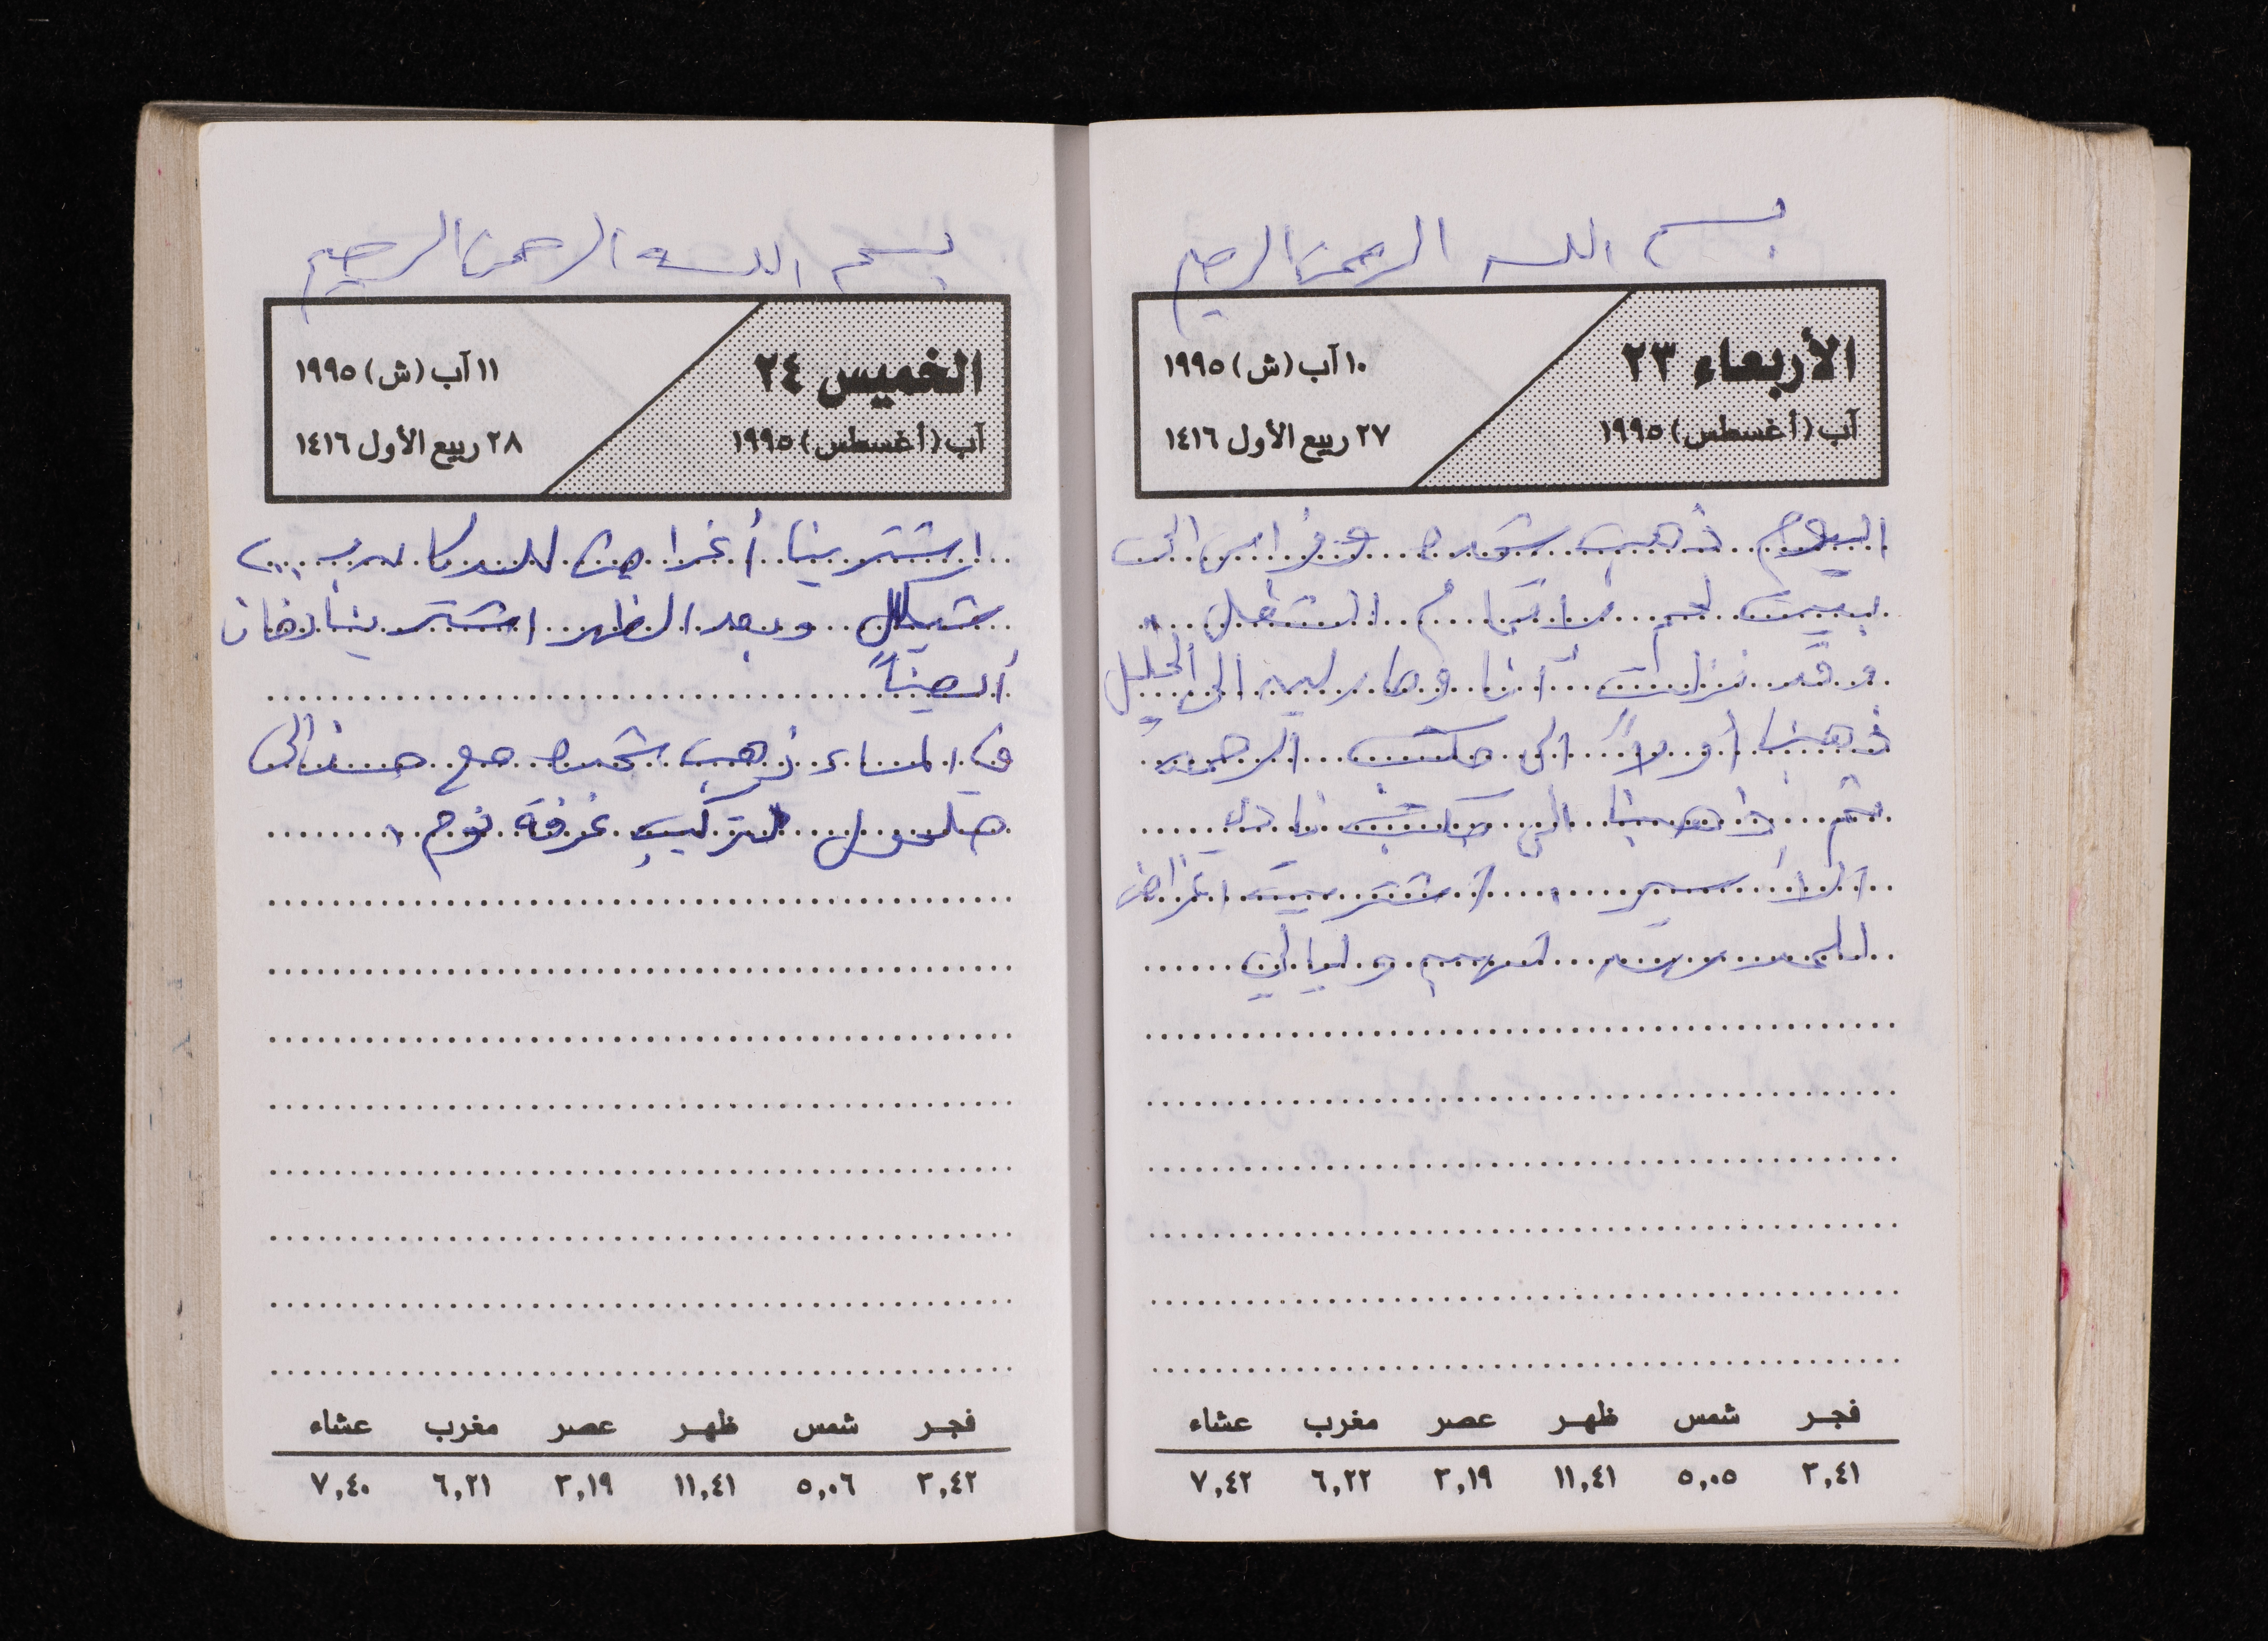 بسم الله الرحمن الرحيم
الأربعاء ٢٣
آب (أغسطس) ١٩٩٥
١٠ آب (ش) ١٩٩٥
٢٧ ربيع الأول ١٤١٦
اليوم ذهب شحده وفراس الى
بيت لحم لاتمام الشغل
وقد نزلت أنا وماريه الى الخليل
ذهبنا أولاً الى مكتب
ثم ذهبنا الى مكتب نادي
الأسير اشتريت اغراض
للمدرسة لهم وليالي
فجر شمس ظهر عصر مغرب عشاء
٣,٤١ ٥,٠٥ ١١,٤١ ٣,١٩ ٦,٢٢ ٧,٤٢
بسم الله الرحمن الرحيم
الخميس ٢٤
آب (أغسطس) ١٩٩٥
١١ آب (ش) ١٩٩٥
٢٨ ربيع الأول ١٤١٦
اشترينا أغراض للدكان ب
شيكل وبعد الظهر اشترينا دخان
أيضاً
في المساء ذهب شحده مع حسن الى
حلحول لتركيب غرفة نوم .
فجر شمس ظهر عصر مغرب عشاء
٣,٤٢ ٥,٠٦ ١١,٤١ ٣,١٩ ٦,٢١ ٧,٤٠